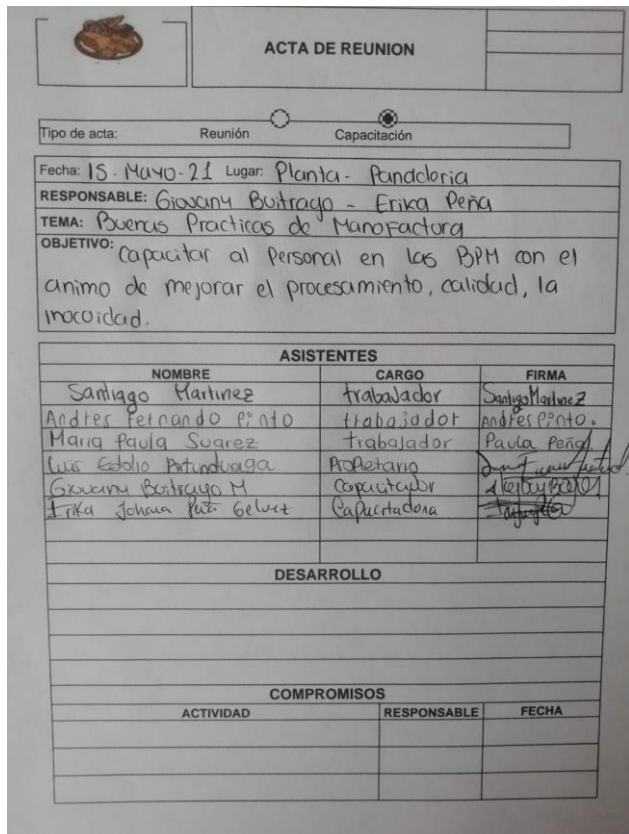 ACTA DE REUNION
Tipo de acta: Reunión Capacitación
Fecha: 15 - Mayo - 21 Lugar: Planta - Panaderia
RESPONSABLE: Giovany Buitrago - Erika Peña
TEMA: Buenas Practicas de Manofactura
OBJETIVO: Capacitar al Personal en las BPM con el
animo de mejorar el procesamiento, calidad, la
inocuidad.
ASISTENTES
NOMBRE CARGO FIRMA
Santiago Martinez trabajador Santiago Martinez
Andres Fernando Pinto trabajador Andres Pinto.
Maria Paula Suarez trabajador Paula Peña
Luis Propietario
Giovany Buitrago M Capacitador
Erika Johana Gelvez Capacitadora
DESARROLLO
COMPROMISOS
ACTIVIDAD RESPONSABLE FECHA